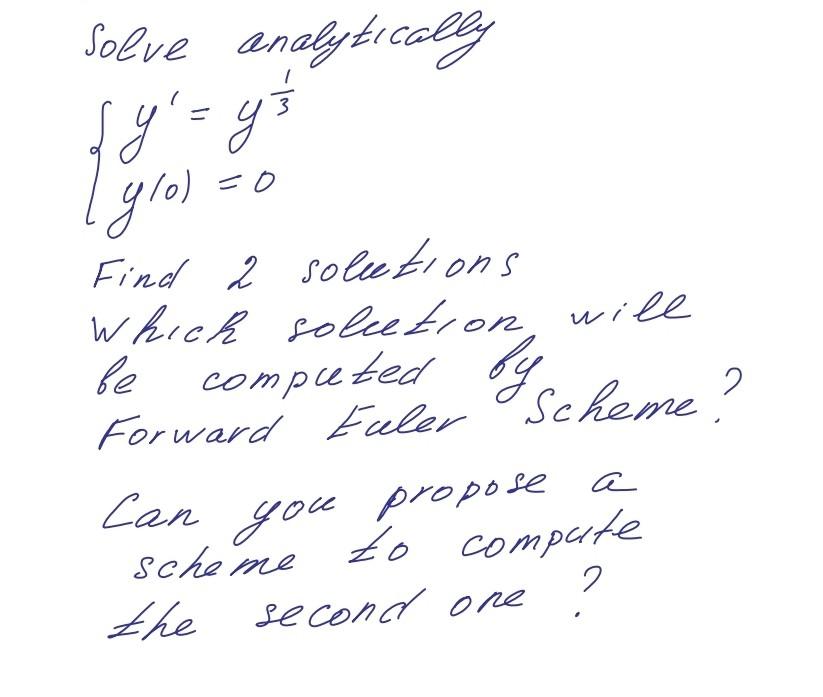 Solve analytically
{ y' = y^{1/3}
y(0) = 0
Find 2 solutions
Which solution will
be computed by
Forward Euler Scheme?
Can you propose a
scheme to compute
the second one ?